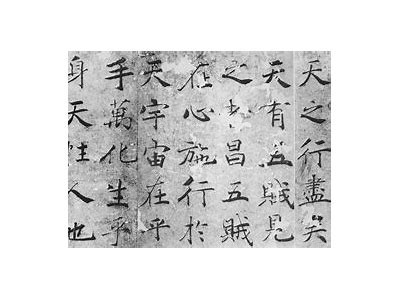 天之行盡矣
天有五賊見
之者昌五賊
在心施行於
天宇宙在乎
手萬化生乎
身天性人也